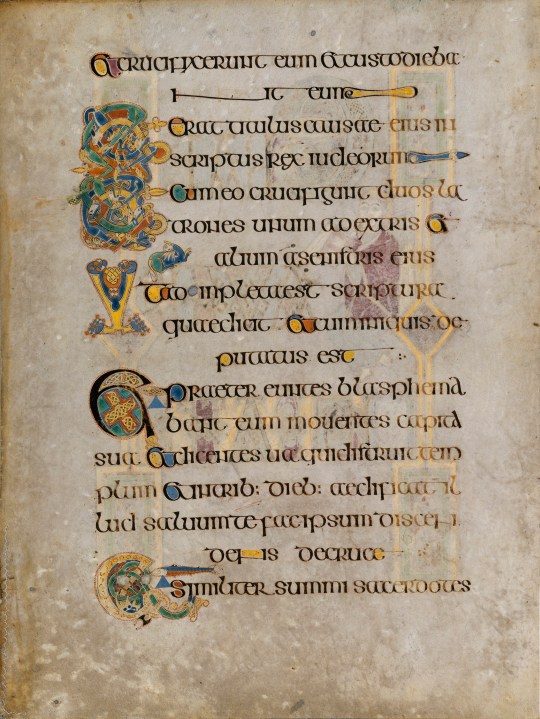 Et crucifixerunt eum et custodieba
nt eum
Erat titulus causae eius in
scriptus rex iudeorum
Et cum eo crucifigunt duos la
trones unum ad extris et
alium a senistris eius
Ut adinpleta est scriptura
quae dicit et cum iniquis de
putatus est
Et praeter euntes blasphema
bant eum mouentes capita
sua et dicentes ua qui distruit tem
plum et in trib: dieb: aedificat il
lud saluum te fac ipsum discen
dens de cruce
Et similiter summi sacerdotes